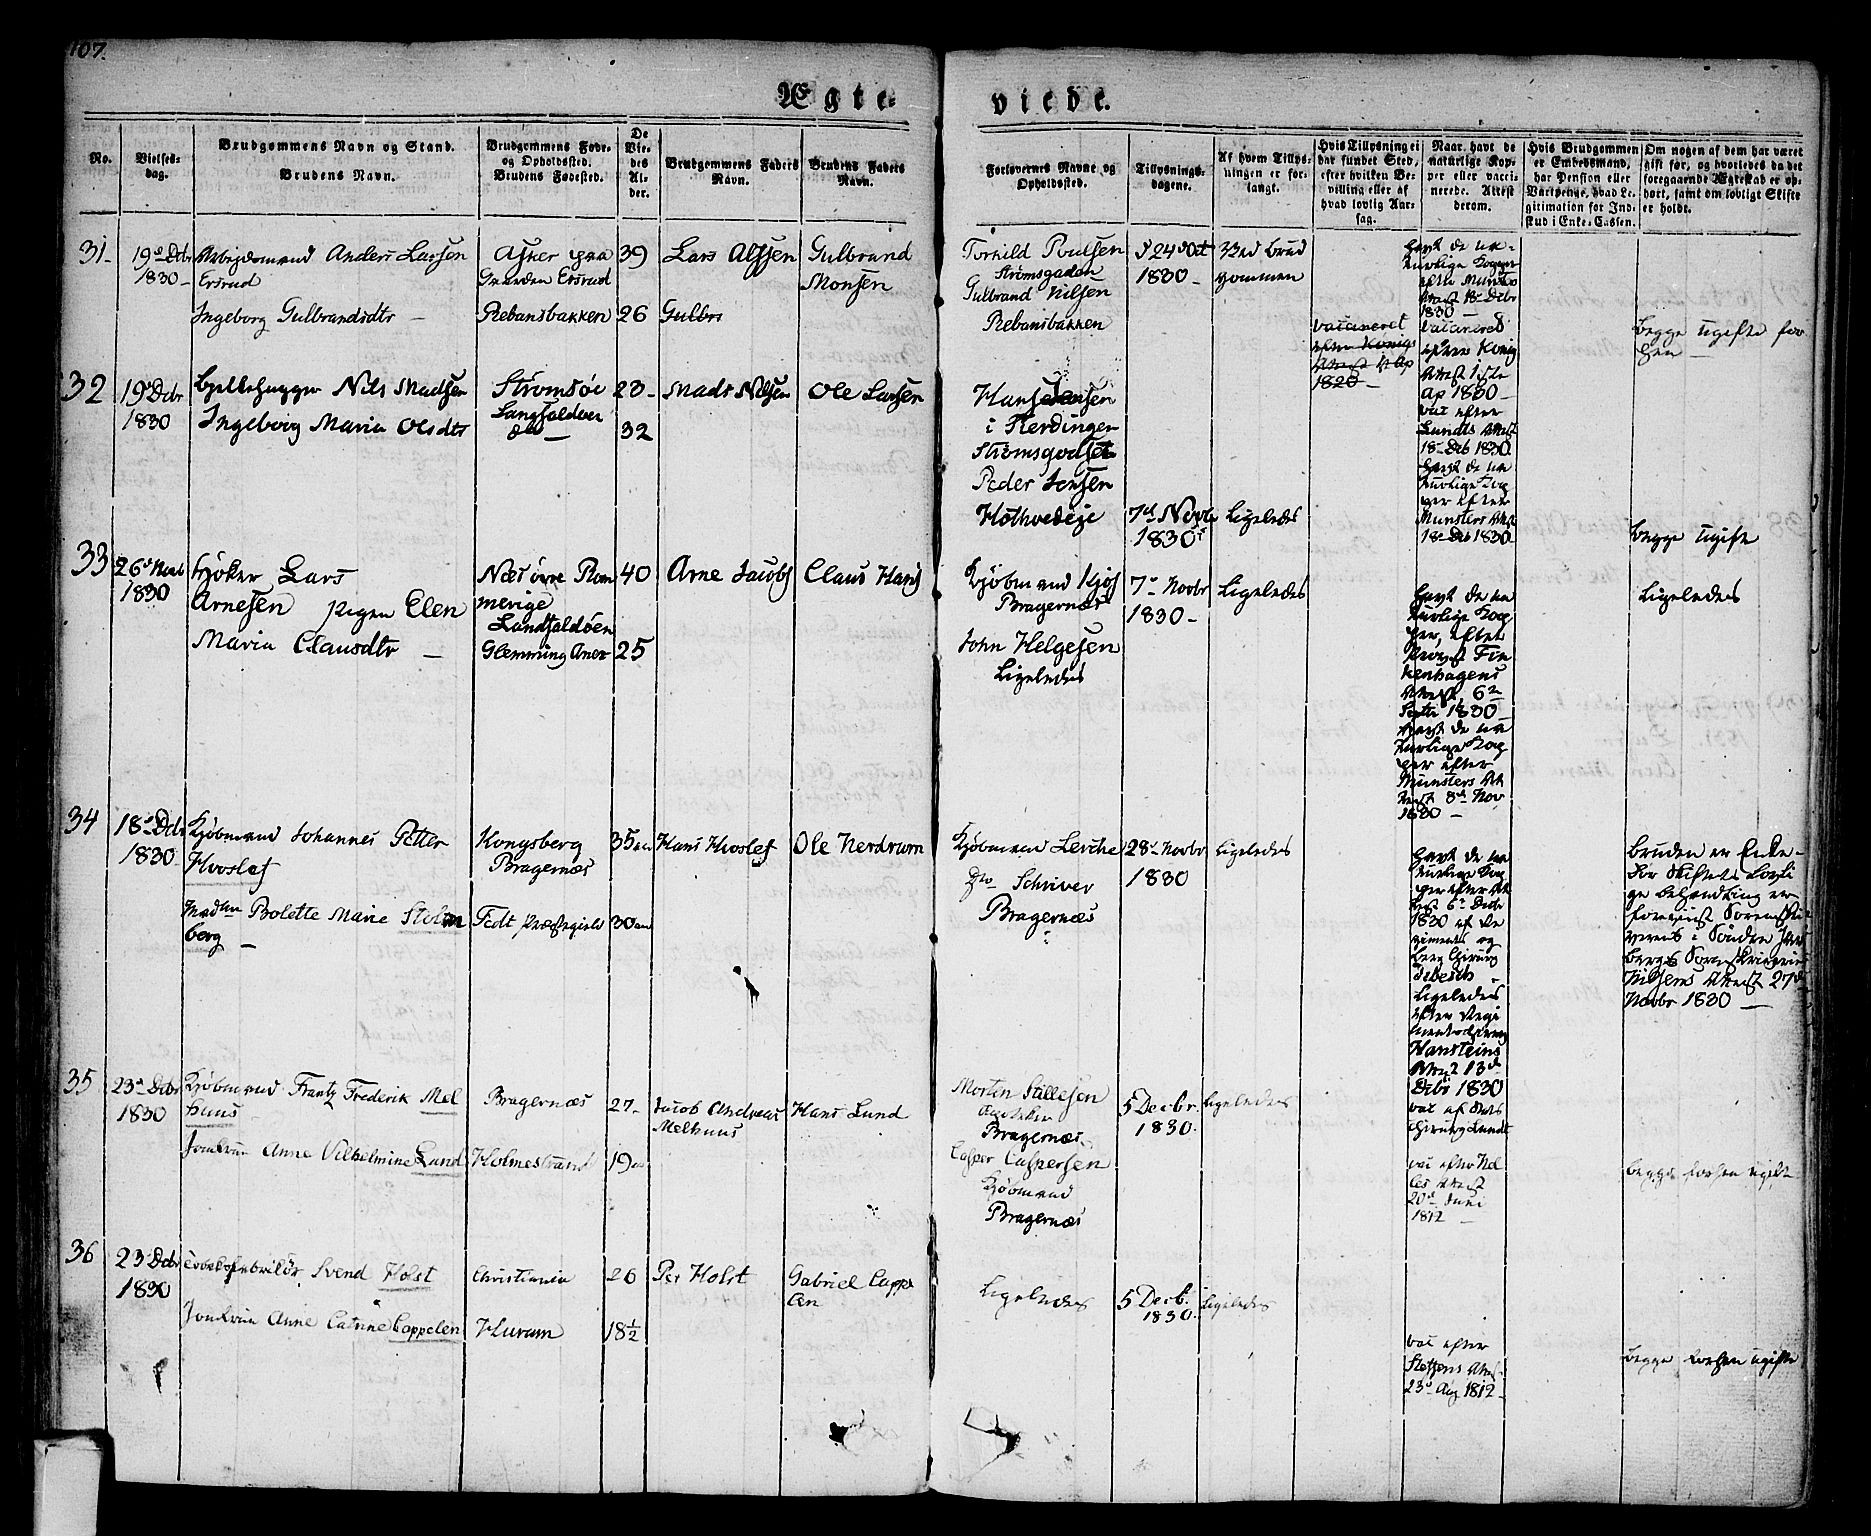 107.
Ægte-
viede.
No.
Vielses-
dag.
Brudgommens Navn og Stand.
Brudens Navn.
Brudgommens Føde-
og Opholdssted.
Brudens Fødested.
De
Vie-
des
Al-
der.
Brudgommens Faders
Navn.
Brudens Faders
Navn.
Forlovernes Navne og
Opholdssted.
Tillysnings-
dagene.
Af hvem Tillys-
ningen er for-
langt.
Hvis Tillysning ei
har fundet Sted,
efter hvilken Be-
villing eller af
hvad lovlig Aar-
sag.
Naar havt de
naturlige Kop-
per eller vacci-
nerede. Attest
derom.
Hvis Brudgommen
er Embedsmand,
har Pension eller
Vartpenge, hvad Le-
gitimation for Ind-
skud i Enke-Cassen.
Om nogen af dem har været
gift før, og hvorledes da det
foregaaende Ægteskab er op-
hørt, samt om lovligt Skifte
er holdt.
31-
19de Dcbr
1830-
Arbejdsmand Anders Larsen
Ersrud
Ingeborg Gulbrandsdtr -
Asker paa
Gaarden Ersrud
Rebansbakken
39
26
Lars Alfsen
Gulbrs
Gulbrand
Monsen
Torkild Poulsen
Strømsgaden
Gulbrand Nilsen
Rebansbakken
24 Oct
1830-
Ved Brud
gommen
vaccineret
efter Konigs
Attest Ap
1820-
havt de na-
turlige Kopper
efter Munsters
Attest 18 Dcbr
1830 -
vaccineret
efter Konig
Attest 1ste
Ap 1830-
begge ugifte for
hen -
32
19 Dcbr
1830
Nils Madsen
Ingeborg Maria Olsdtr
Strømsøe
Langfaldøen
do -
23-
32
Mads Nilsen
Ole Larsen
Hans Larsen
i Kerdingen
Strømsgodset
Peder Jensen
Hothvedeje
7d Novb
1830
Ligeledes
vac efter
Lundts Attest
18 Deb 1830
havt de na
turlige Kop
per efter
Munsters Attest
18 Deb 1830
begge ugifte
33
26 Novb
1830
Høker Lars
Arnesen pigen Elen
Maria Clausdtr -
Næs øvre Rom
merige
Landfaldøen
Glemming Aner
40
25
Arne Jacobs
Claus Hans
Kjøbmand Kjøs
Bragernæs
John Helgesen
Ligeledes
7 Novbr
1830-
Ligeledes
havt de na
turlige Kop
per, efter
Provst Fin
kenhagens
Attest, 6
Septr 1830-
havt de na
turlige Kop
per efter
Munsters At
test 8d Nov
1830 -
Ligeledes
34
18 Dcbr
1830
Kjøbmand Johannes Petter
Hvoslef
Madme Bolette Marie Stolten
berg -
Kongsberg
Bragernæs
Fedt Præstegield
35
30
Hans Hvoslef
Ole Nerdrum
Kjøbmand Lerche
Do Schriver
Bragernæs
28 Novbr
1830
Ligeledes
havt de na
turlige Kop
per efter At
test 6 Decbr
1830 af Re
giments og
berg Chirurg
Debesch
Ligeledes
efter Regi
Hansteins
Attest 13d
Debr 1830
bruden er Enke-
for Skiftets Lovli
ge behandling er
foreviist Sorenskri
verens i Søndre Jarls
bergs Sorenskriveries
Nilsens Attest 27de
Novbr 1830 -
35
23d Dcbr
1830
Kjøbmand Frantz Frederik Mel
huus -
Jomfrue Anne Vilhelmine Lund
Bragernæs
Holmestrand
27-
19
Jacob Andreas
Melhuus
Hans Lund
Morten Stillesen
Apotheker
Bragernæs
Casper Caspersen
Kjøbmand
Bragernæs
5 Decbr.
1830.
Ligeledes
vac af Stads
Chirurg Lundt
vac efter Nel
les Attest
20d Juni
1812 -
begge forhen ugifte
36
23 Dcbr
1830
Svend Holst
Jomfrue Anne Catrine Cappelen
Christiania
Hurum
26
18½
Per Holst
Gabriel Cappe
len
Ligeledes
5 Decb.
1830.
Ligeledes
vac efter
Steffens Attest
23d Aug 1812-
begge forhen ugifte